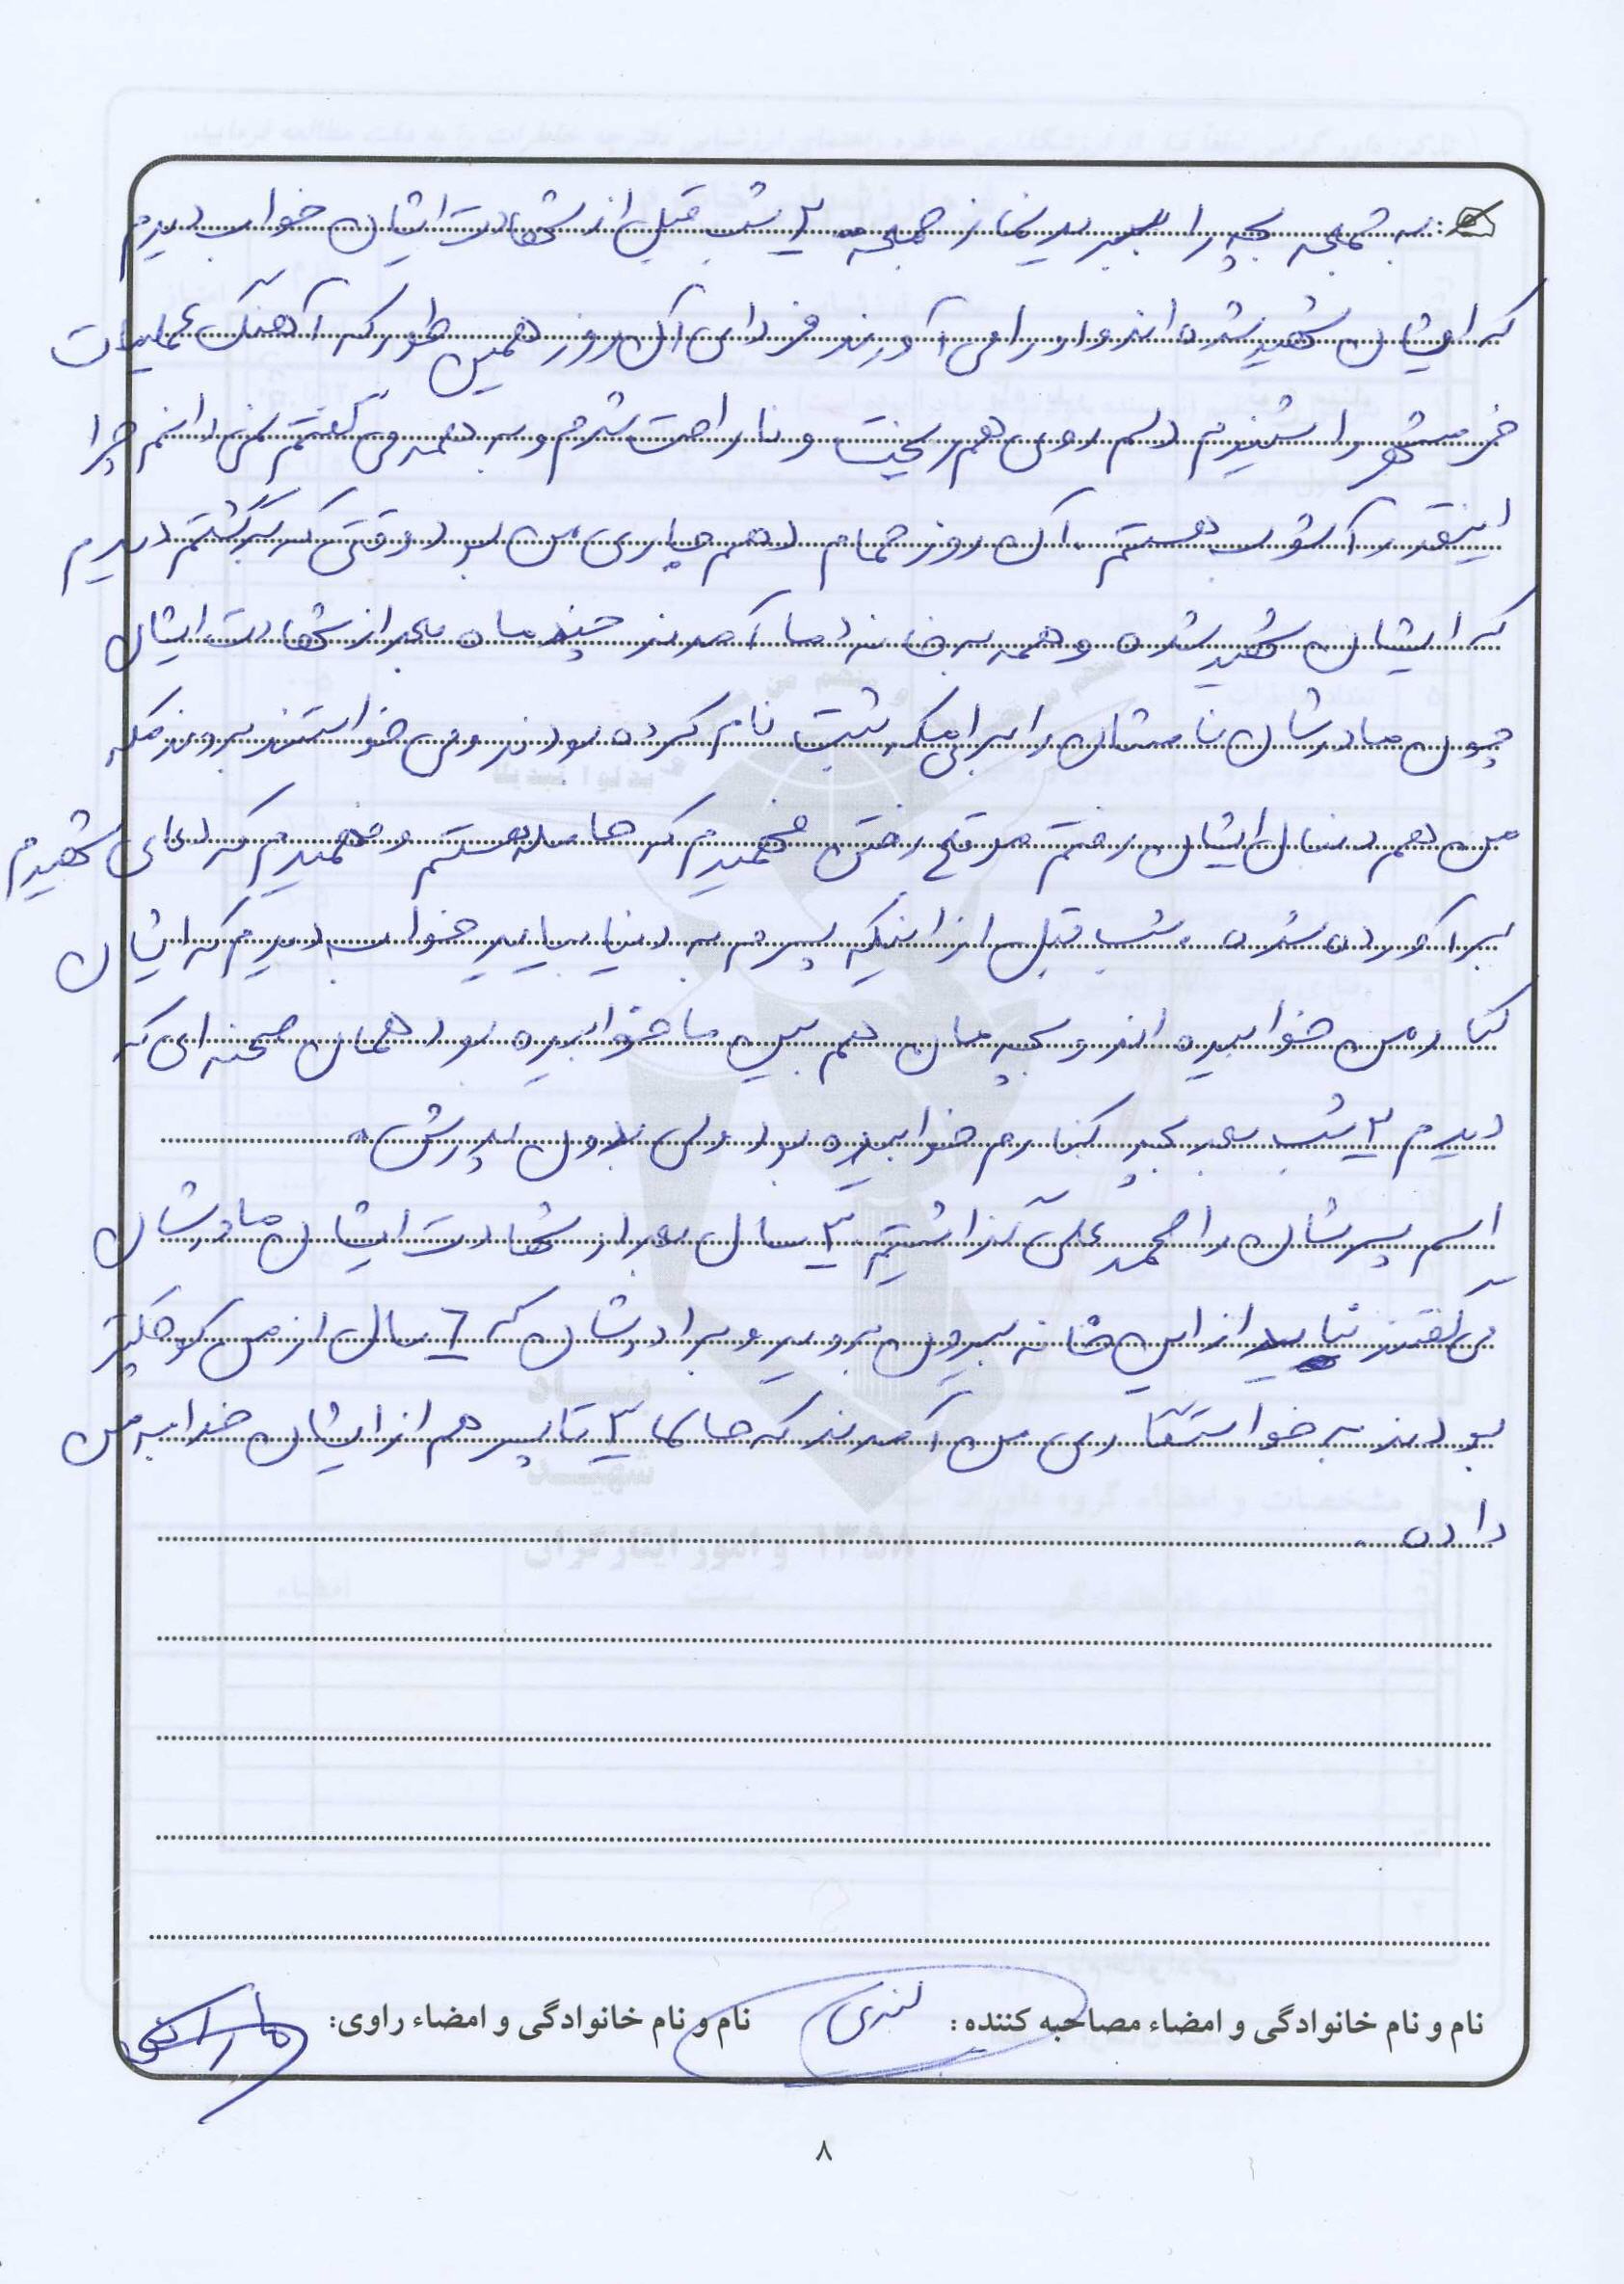 به جمعه بچه را ببرید نماز جمعه ۲ شب قبل از شهادت ایشان خواب دیدم
که ایشان شهید شده اند و او را می آورند فردای آن روز همین طور که آهنگ عملیات
خرمشهر را شنیدم دلم روی هم ریخت و ناراحت شدم و به همه می گفتم نمی دانم چرا
اینقدر آشوب هستم. آن روز حمام دهم جاری من بود وقتی که برگشتم دیدم
که ایشان شهید شده و همه به خانه ما آمدند چند ماه بعد از شهادت ایشان
چون مادرشان نامشان را برای مکه ثبت نام کرده بودند و می خواستند بروند مکه
من هم دنبال ایشان رفتم موقع رفتن فهمیدم که حامله هستم و فهمیدم که دعای شهیدم
برآورده شده. شب قبل از اینکه پسرم به دنیا بیاید خواب دیدم که ایشان
کنار من خوابیده اند و بچه مان هم بین ما خوابیده بود همان صحنه ای که
دیدم ۲ شب بعد بچه کنارم خوابیده بود ولی بدون پدرش.
اسم پسرشان را محمد علی گذاشتیم ۳ سال بعد از شهادت ایشان مادرشان
می گفتند نباید از این خانه بیرون بروید و برادرشان که ۶ سال از من کوچکتر
بودند به خواستگاری من آمدند که حالا ۳ تا پسر هم از ایشان خدا به من
داده.
نام و نام خانوادگی و امضاء مصاحبه کننده: نام و نام خانوادگی و امضاء راوی:
۸